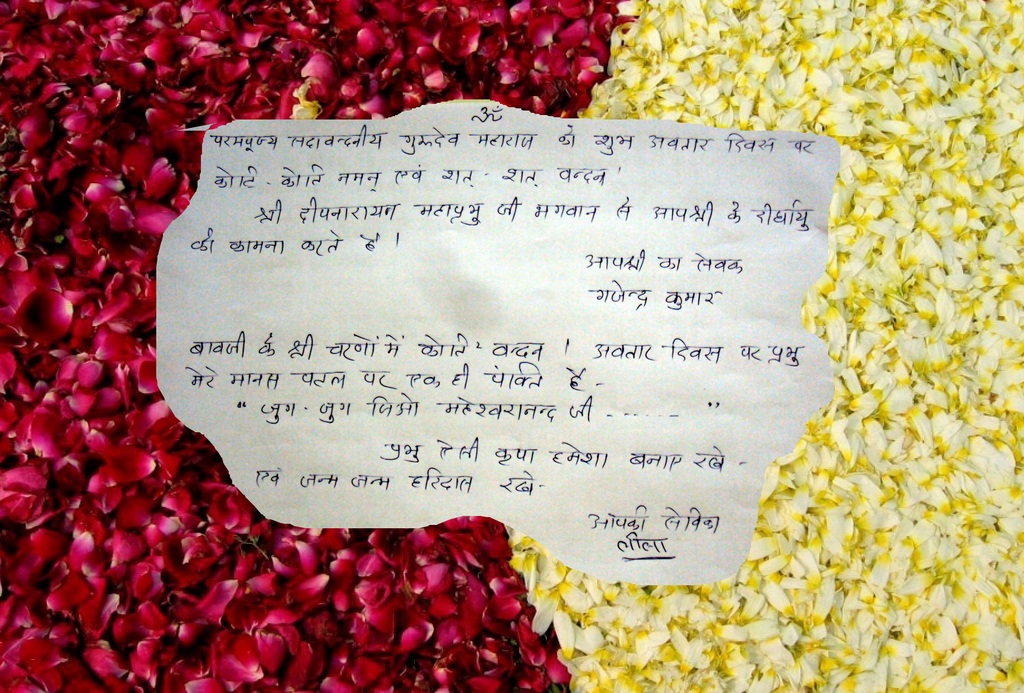 ॐ
परमपूज्य सदावन्दनीय गुरूदेव महाराज को शुभ अवतार दिवस पर
कोटि - कोटि नमन् एवं शत् - शत् वन्दन ।
श्री दीपनारायन महाप्रभु जी भगवान से आपश्री के दीर्घायु
की कामना करते है ।
आपश्री का सेवक
गजेन्द्र कुमार
बावजी के श्री चरणों में कोटि - वन्दन । अवतार दिवस पर प्रभु
मेरे मानस पटल पर एक ही पंक्ति है -
" जुग - जुग जिओ महेश्वरानन्द जी - - - - - - "
प्रभु ऐसी कृपा हमेशा बनाए रखे -
एवं जन्म जन्म हरिदास रखे -
आपकी सेविका
लीला